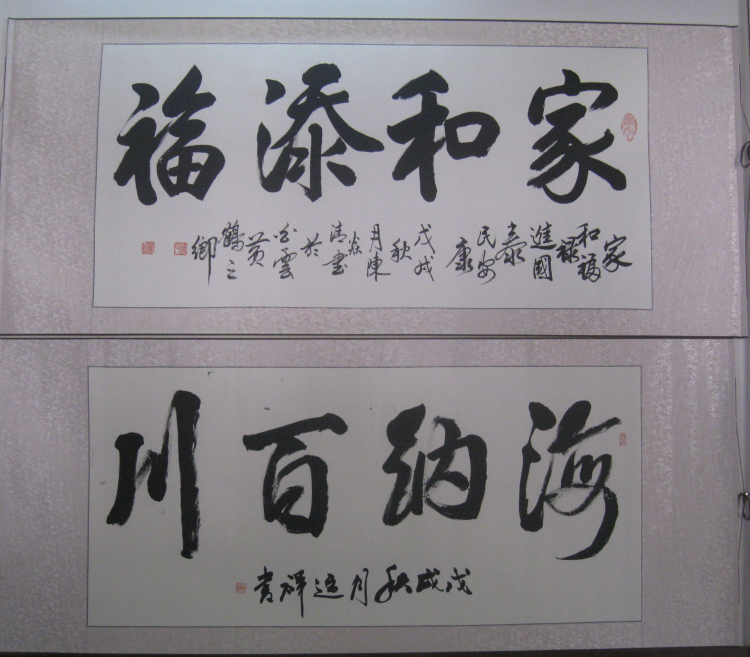 家和添福
家和福禄進國泰民安康戊戌秋月陳焱清書於白雲黃鶴之鄉
海纳百川
戊戌秋月祥書